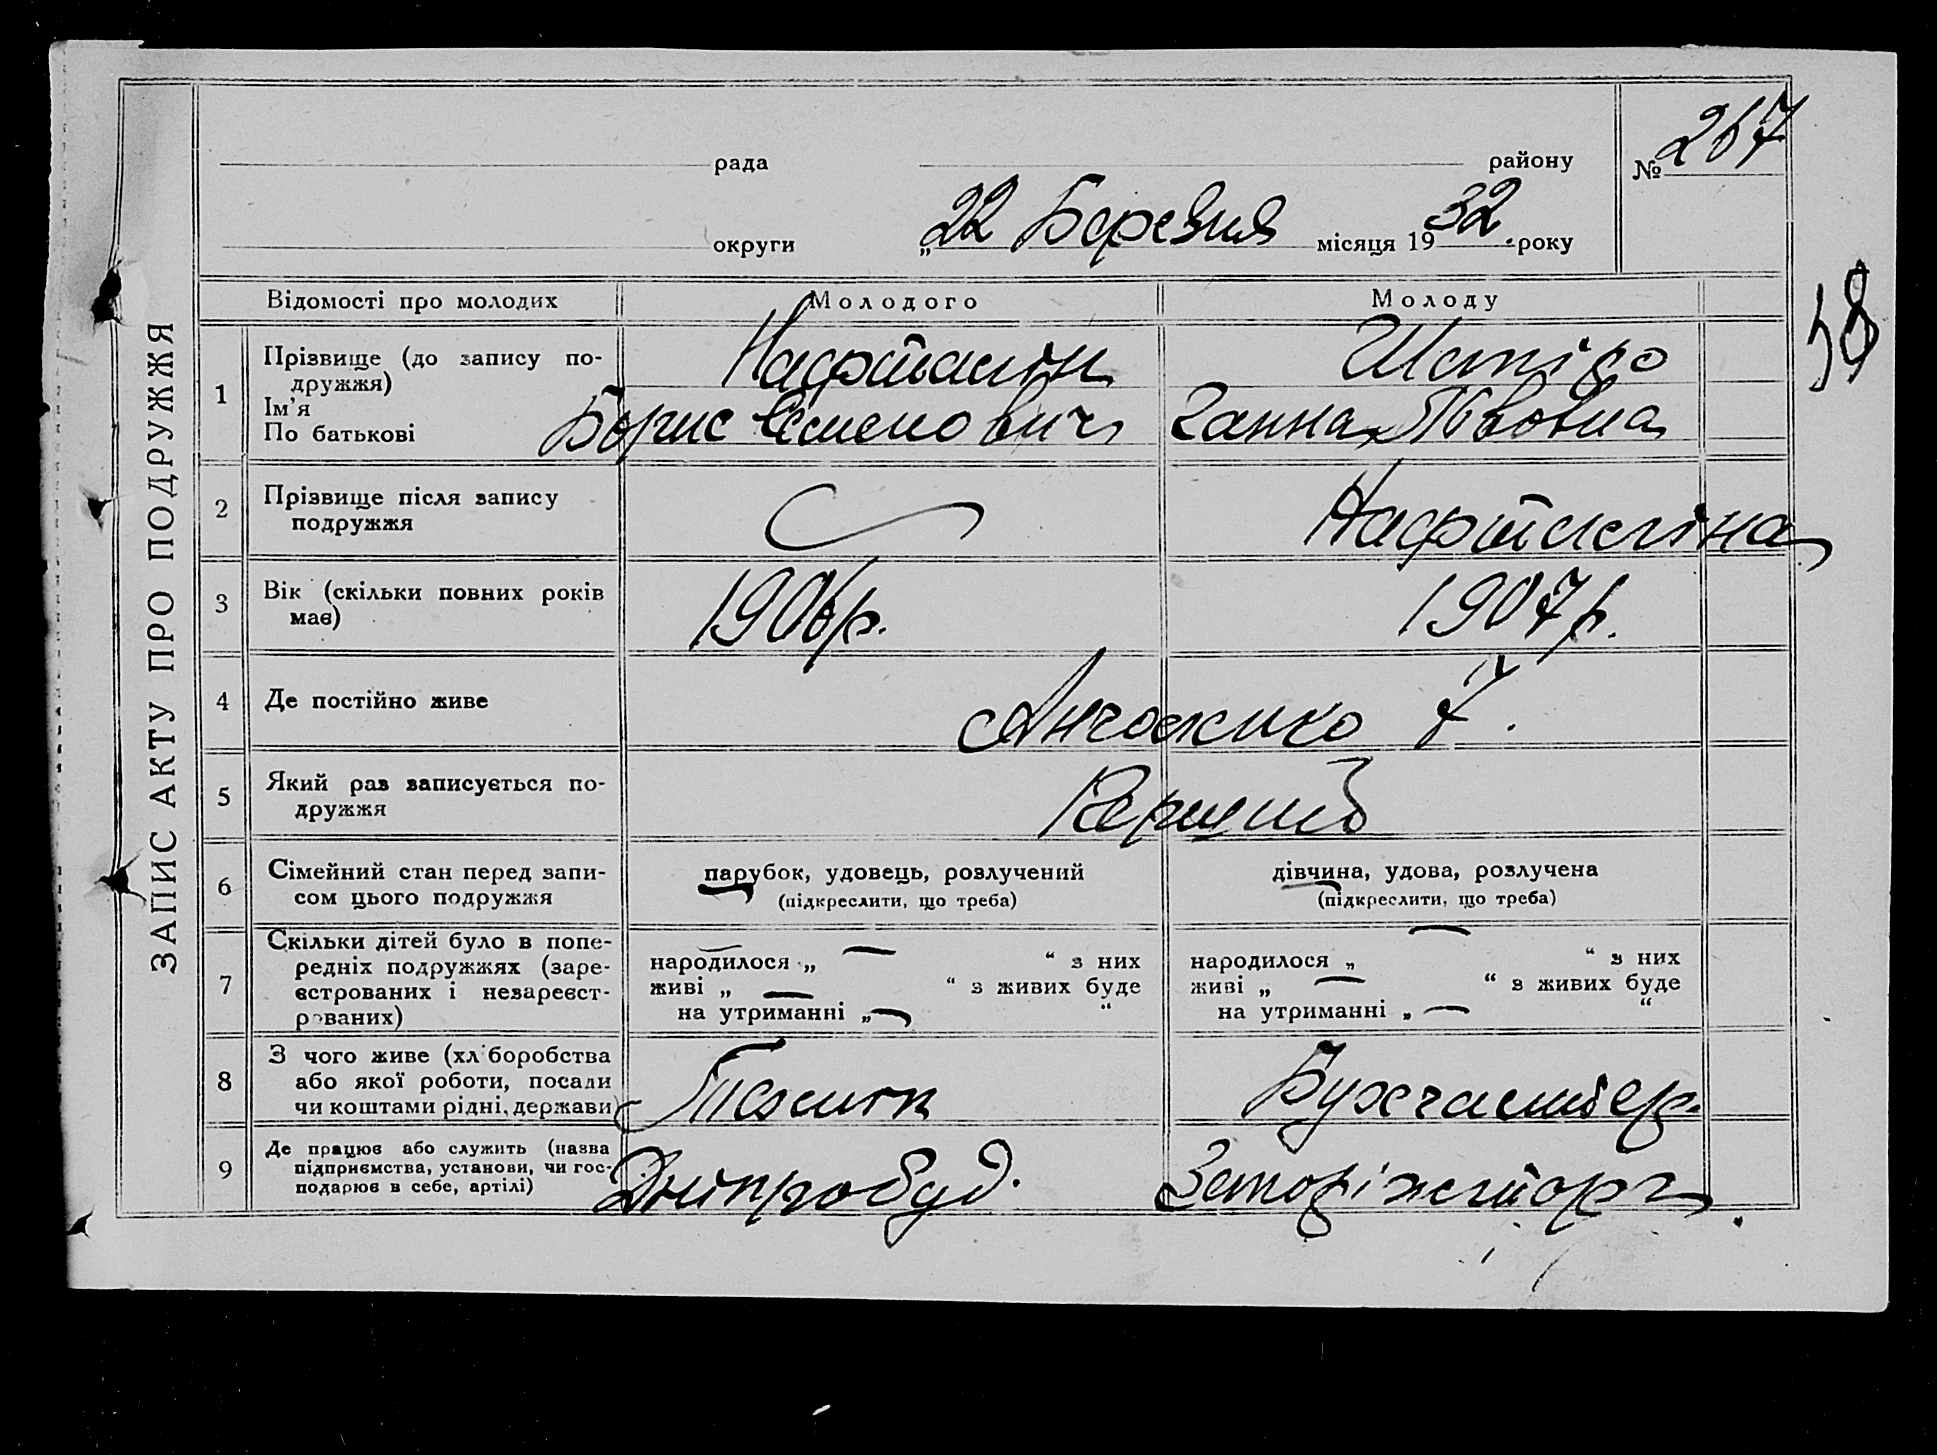 ЗАПИС АКТУ ПРО ПОДРУЖЖЯ
рада району № 267
округи „22 Березня місяця 1932 року
58
Відомості про молодих Молодого Молоду
1 Прізвище (до запису по-
дружжя) Нафталін Шапіро
Ім'я
По батькові Борис Семенович Ганна Львовна
2 Прізвище після запису
подружжя Нафталіна
3 Вік (скільки повних років
має) 1906р. 1907р.
4 Де постійно живе
5 Який раз записується по-
дружжя Перший
6 Сімейний стан перед запи-
сом цього подружжя
парубок, удовець, розлучений
(підкреслити, що треба)
дівчина, удова, розлучена
(підкреслити, що треба)
7 Скільки дітей було в попе-
редніх подружжях (заре-
єстрованих і незареєст-
рованих)
народилося „ — “ з них
живі „ — “ з живих буде
на утриманні „ — “
народилося „ — “ з них
живі „ — “ з живих буде
на утриманні „ — “
8 З чого живе (хліборобства
або якої роботи, посади
чи коштами рідні, держави) Технік Бухгалтер.
9 Де працює або служить (назва
підприємства, установи, чи гос-
подарює в себе, артілі) Дніпробуд. Запоріжторг